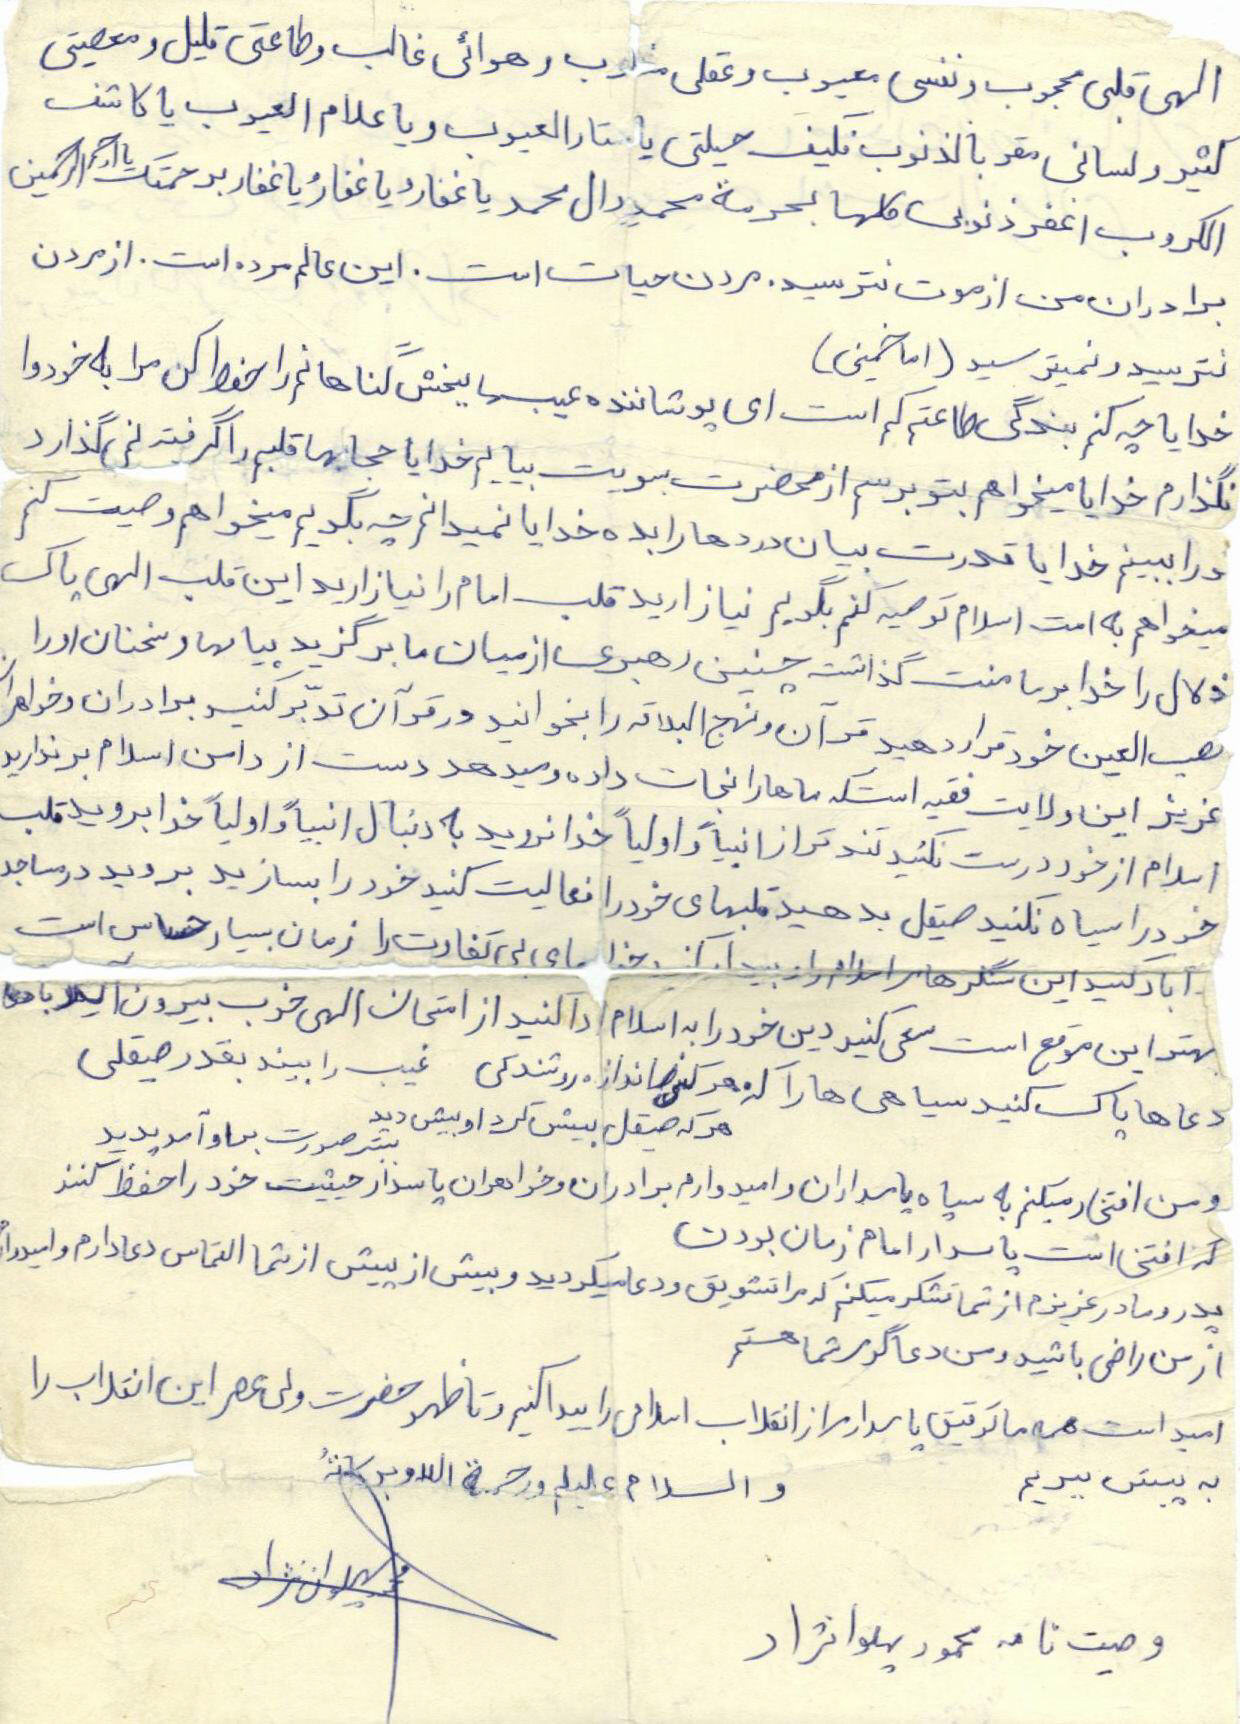 الهی قلبی محجوب و نفسی معیوب و عقلی مغلوب و هوائی غالب و طاعتی قلیل و معصیتی
کثیر و لسانی مقر بالذنوب فکیف حیلتی یا ستار العیوب و یا علام الغیوب یا کاشف
الکروب اغفر ذنوبی کلها بحرمة محمدٍ وال محمد یا غفارُ یا غفارُ یا غفار برحمتک یا ارحم الرحمین
برادران من از موت نترسید. مردن حیات است. این عالم مرده است. از مردن
نترسید و نمیترسید (امام خمینی)
خدایا چه کنم بندگی طاعتم کم است ای پوشاننده عیبها ببخش گناهانم را حفظ کن مرا به خود وا
نگذارم خدایا میخواهم بتو برسم از محضرت بسویت بیایم خدایا حجابها قلبم را گرفته نمی‌گذارد
ترا ببینم خدایا قدرت بیان دردها را بده خدایا نمیدانم چه بگویم میخواهم وصیت کنم
میخواهم به امت اسلام توصیه کنم بگویم نیازارید قلب امام را نیازارید این قلب الهی پاک
ذلال را خدا بر ما منت گذاشت چنین رهبری از میان ما برگزید پیامها و سخنان او را
نصب العین خود قرار دهید قرآن و نهج البلاقه را بخوانید در قرآن تدبّر کنید برادران و خواهران
عزیز این ولایت فقیه است که ماها را نجات داده و میدهد دست از دامن اسلام برندارید
اسلام از خود درست نکنید تندتر از انبیاً و اولیاً خدا نروید به دنبال انبیاً و اولیاً خدا بروید قلب
خود را سیاه نکنید صیقل بدهید قلبهای خود را فعالیت کنید خود را بسازید بروید در مساجد
آباد کنید این سنگرهای اسلام را بی تفاوت را زمان بسیار حساس است
بهترین موقع است سعی کنید دین خود را به اسلام ادا کنید از امتحان الهی خوب بیرون آیید با دعا
دعاها پاک کنید سیاهی ها را که هر کسی اندازه روشندلی غیب را بیند بقدر صیقلی
هر که صیقل بیش کرد او بیش دید بیشتر صورت بر او آمد پدید
و من افتخار میکنم به سپاه پاسداران و امیدوارم برادران و خواهران پاسدار حیثیت خود را حفظ کنند
که افتخار است پاسدار امام زمان بودن
پدر و مادر عزیزم از شما تشکر میکنم که مرا تشویق و دعا میکردید و بیش از پیش از شما التماس دعا دارم و امیدوارم
از من راضی باشید و من دعاگوی شما هستم
امید است همه ما توفیق پاسداری از انقلاب اسلامی را پیدا کنیم و تا ظهور حضرت ولی عصر این انقلاب را
به پیش ببریم و السلام علیکم و رحمة الله و برکاتهُ
پهلوان نژاد
وصیت نامه محمود پهلوانژاد